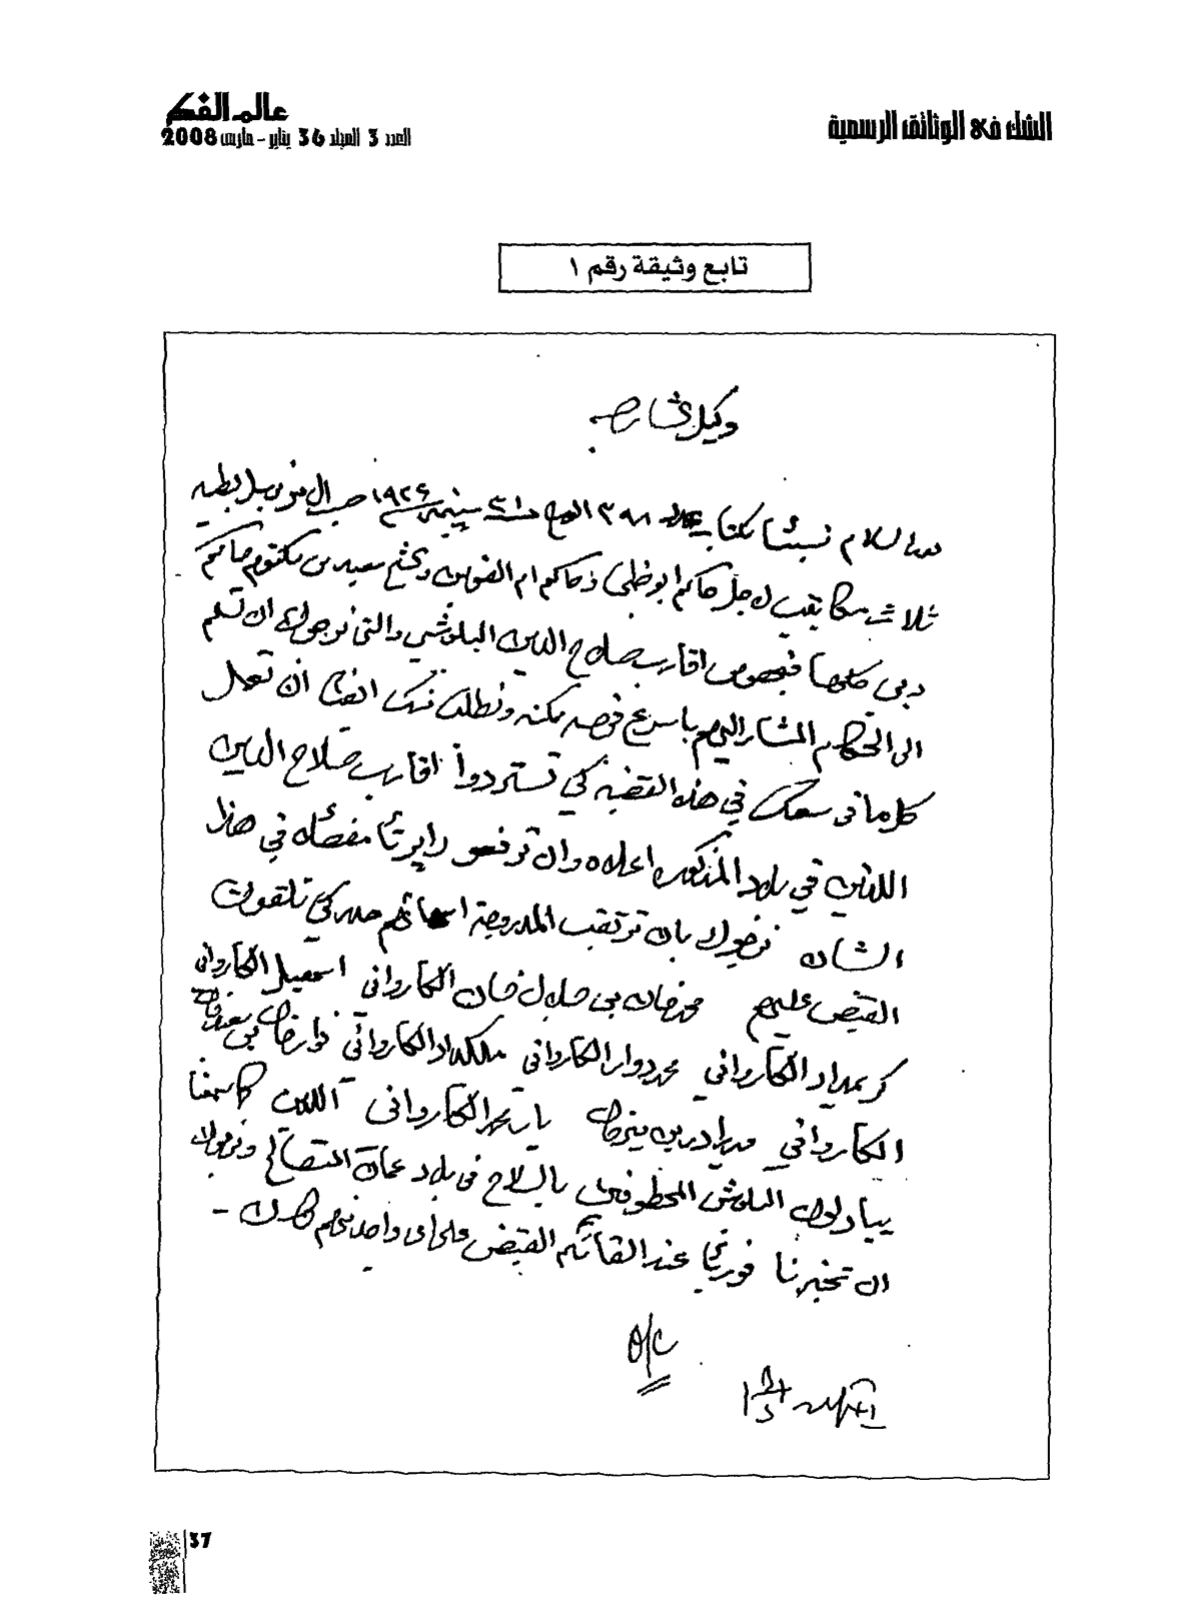 عالم الفكر
العدد 3 المجلد 36 يناير - مارس 2008
الشك في الوثائق الرسمية
تابع وثيقة رقم ١
وكيل شارجه
بعد السلام نسبتا لكتاب عدد ٣٩٨ المورخ ١٩٢٦ سبتمبر الى طيه
ثلاث مكاتيب لاجل حاكم ابوظبي وحاكم ام القوين وشيخ سعيد بن مكتوم حاكم
دبي كلها بخصوص اقارب صلاح الدين البلوشي والتي نرجوك ان تسلم
الى الحكام المشار اليهم باسرع فرصه ممكنه ونطلب منك ايضا ان تعمل
كل ما في سعك في هذه القضيه كي تستردوا اقارب صلاح الدين
اللذين في بلاد المذكوره اعلاه وان ترفعو راپرتا مفصله في هذا
الشان نرجوك بان ترتقب المدروجة اسمائهم كي تلقون
القبض عليهم محمد خان بن جلال خان الكارواني اسمعيل الكارواني
كريمداد الكارواني محمد دوار الكارواني ملكداد الكارواني بن سعد
الكارواني مراد بن بارتحمد الكارواني اللذين كا
يبادلون البلوش المخطوفين بالسلاح في بلاد عمان المتصالح ونرجوك
ان تخبرنا فوريا عند القائكم القبض على اي واحد منهم كان -
o/c
37